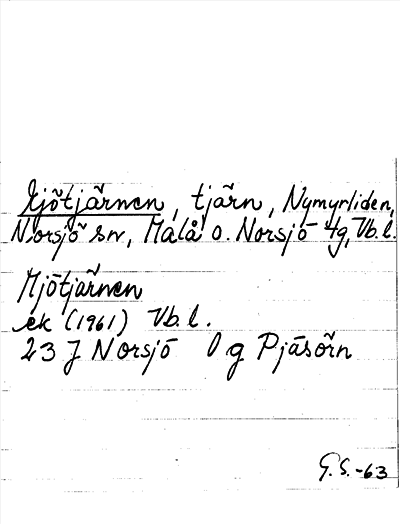 Mjötjärnen, tjärn, Nymyrliden,
Norsjö sn, Malå o. Norsjö 4g, Vb.l.
Mjötjärnen
ek (1961) Vb.l.
23 J Norsjö 0 g Pjäsörn
G.S.-63